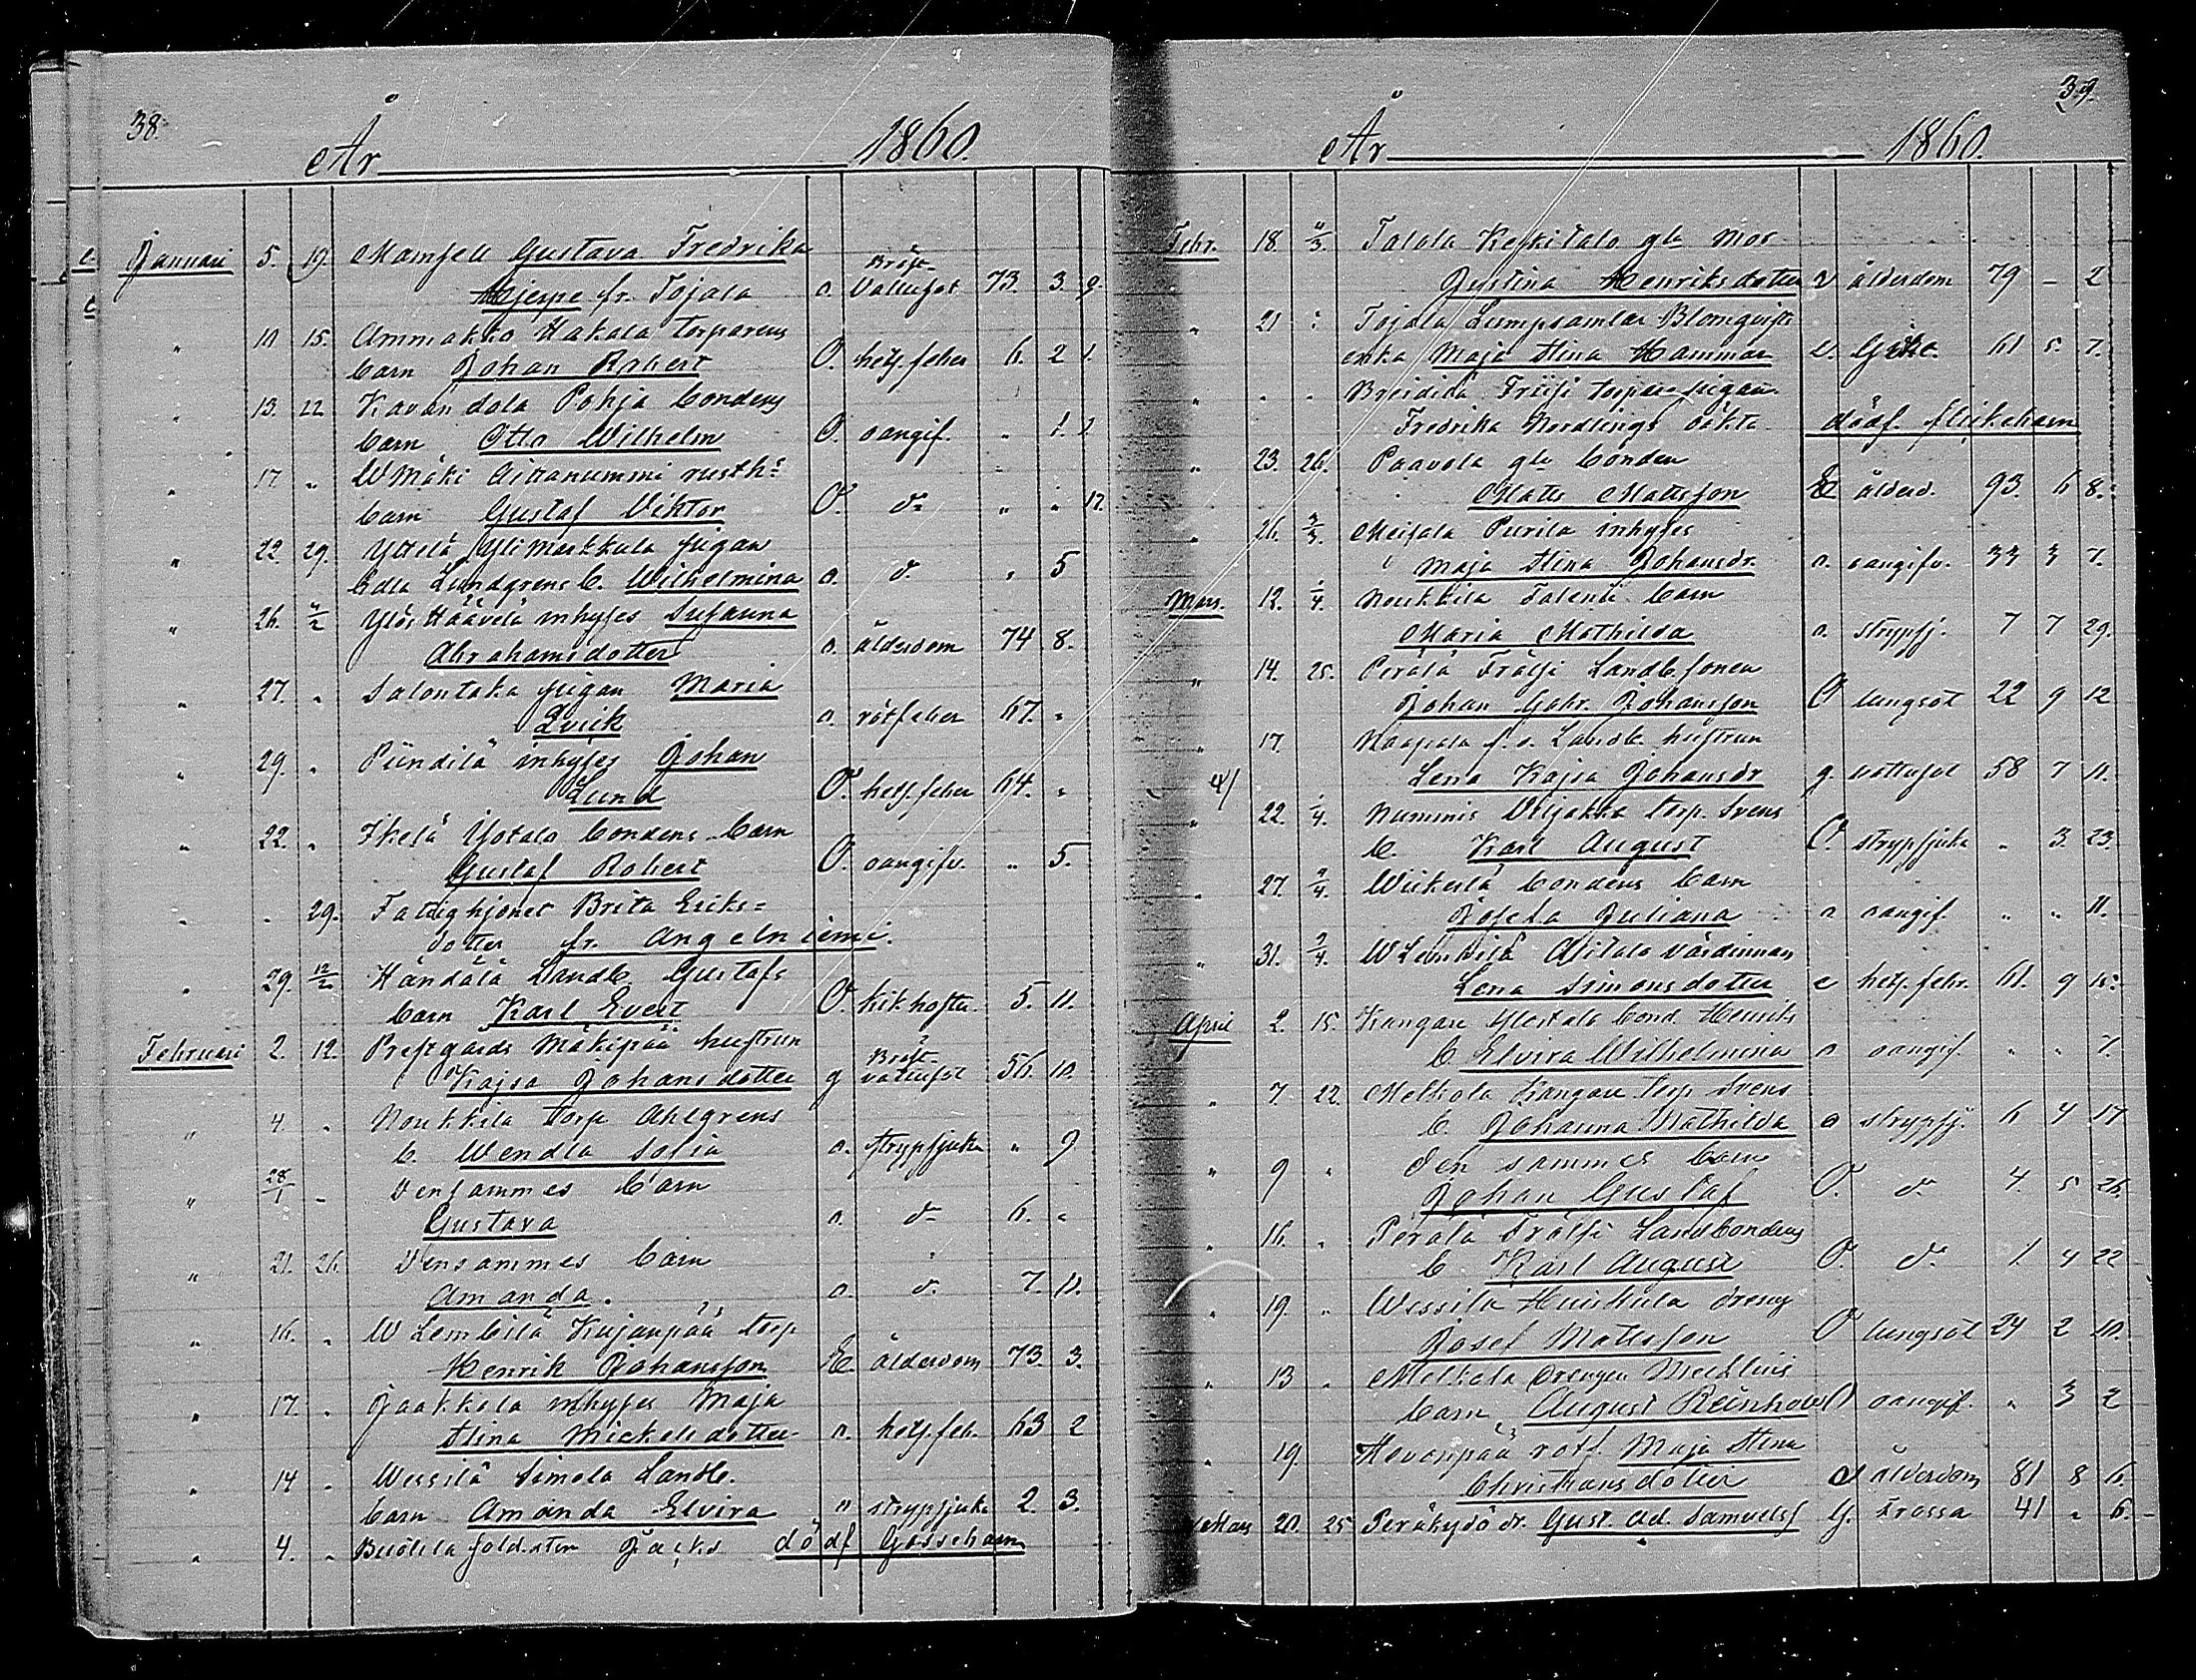 38.
År 1860.
Januari 5. 19. Mamsell Gustava Fredrika
Hjerpe fr. Tojala o. Bröst-vattusot 73. 3. 9.
" 10 15. Ammakko Hakala torparens
barn Johan Robert O. hets. feber 6. 2 1.
" 13. 22 Kavandola Pohja bondens
barn Otto Wilhelm O. oangif. " 1. 1.
" 17 " W Mäki Aittanummi rusth:
barn Gustaf Viktor O. do " " 12.
" 22. 29. Yttelä Ylimarkkula pigan
Edla Lundgrens b. Wilhelmina o. d. " 5
" 26. 4/2 Ylös Häävelä inhyses Susanna
Abrahamsdotter o. ålderdom 74 8.
" 27. " Salontaka pigan Maria
Qvick o. rötfeber 67. "
" 29. " Piindilä inhyses Johan
Lund O. hets. feber 64. "
" 22. " Ikelä Isotalo bondens barn
Gustaf Robert O. oangifv. " 5.
" " 29. Fattighjonet Brita Eriks=
dotter fr. Angelniemi.
" 29. 12/2 Händälä Landb. Gustafs
barn Karl Evert O. kikhosta. 5. 11.
Februari 2. 12. Prestgårds Mäkipää hustrun
Kajsa Johansdotter g Bröst-vattusot 56. 10.
" 4. " Noukkila torp Ahlgrens
b. Wendla Sofia o. strypsjuka " 9
" 28/1 " Densammes barn
Gustava o. do 6. "
" 21. 26. Densammes barn
Amanda. o. d. 7. 11.
" 16. " W Lembilä Kujanpää torp
Henrik Johansson E. ålderdom 73. 3.
" 17. " Jaakkola inhyses Maja
Stina Mickelsdotter o. hets. feb. 63 2
" 14 " Wessilä Simola Landb.
barn Amanda Elvira " strypsjuka 2. 3.
" 4. " soldaten Jacks dödf Gossebarn
39.
År 1860.
Febr. 18. 4/3. Talola Keskitalo gla Mor
Justina Henriksdotter ålderdom 79 – 2
" 21 : Tojala Lumpsamlar Blomqvists
enka Maja Stina Hammar 61 5. 7.
" " " torpare pigan
Fredrika Nordlings oäkta dödf. flickebarn
" 23. 26. Paavola gla bonden
Matts Mattsson E ålderd. 93. 6 8.
" 26. 4/3. Meisala Purila inhyses
Maja Stina Johansdr. o. oangifv. 33 3 7.
Mars. 12. 1/4. Noukkila Talenti barn
Maria Mathilda o. strypsj. 7 7 29.
" 14. 25. Perälä Frälsi Landb. sonen
Johan Gabr. Johansson O lungsot 22 9 12
" 17. Naapala f.d. Landb. hustrun
Lena Kajsa Johansdr g. vattusot 58 7 11.
4/
" 22. 1/4. Nummis Viljakka torp. Svens
b. Karl August O. strypsjuka " 3. 23.
" 27. Wiikerlä bondens barn
Josefa Juliana o oangif. " " 11.
" 31. W Lembilä Alitalo värdinnan
Lena Simonsdotter e hets. febr. 61. 9 15.
April 2. 15. Kangare Ylistalo bond. Henriks
b. Elvira Wilhelmina o oangif. " " 7.
" 7 22. Melkola Kangare torp Svens
b. Johanna Mathilda o strypsj. 6 4 17
" 9 " Den sammes barn
Johan Gustaf O. d. 4. 5 26.
" 16. " Perälä Frälsi Landbondens
b Karl August O. do 1. 4 22
" 19. " Wessilä Huiskula dreng
Josef Mattsson O lungsot 24 2 10.
" 13 " Melkola drengen Mechlins
barn August Reinhold O oangif. " 3 2
" 19 Hevonpää rotf. Maja Stina
Christiansdotter ålderdom 81 8 6.
Mars 20. 25 Peräkylä dr. Gust. Ad. Samuelss G. Frossa 41 " 6.